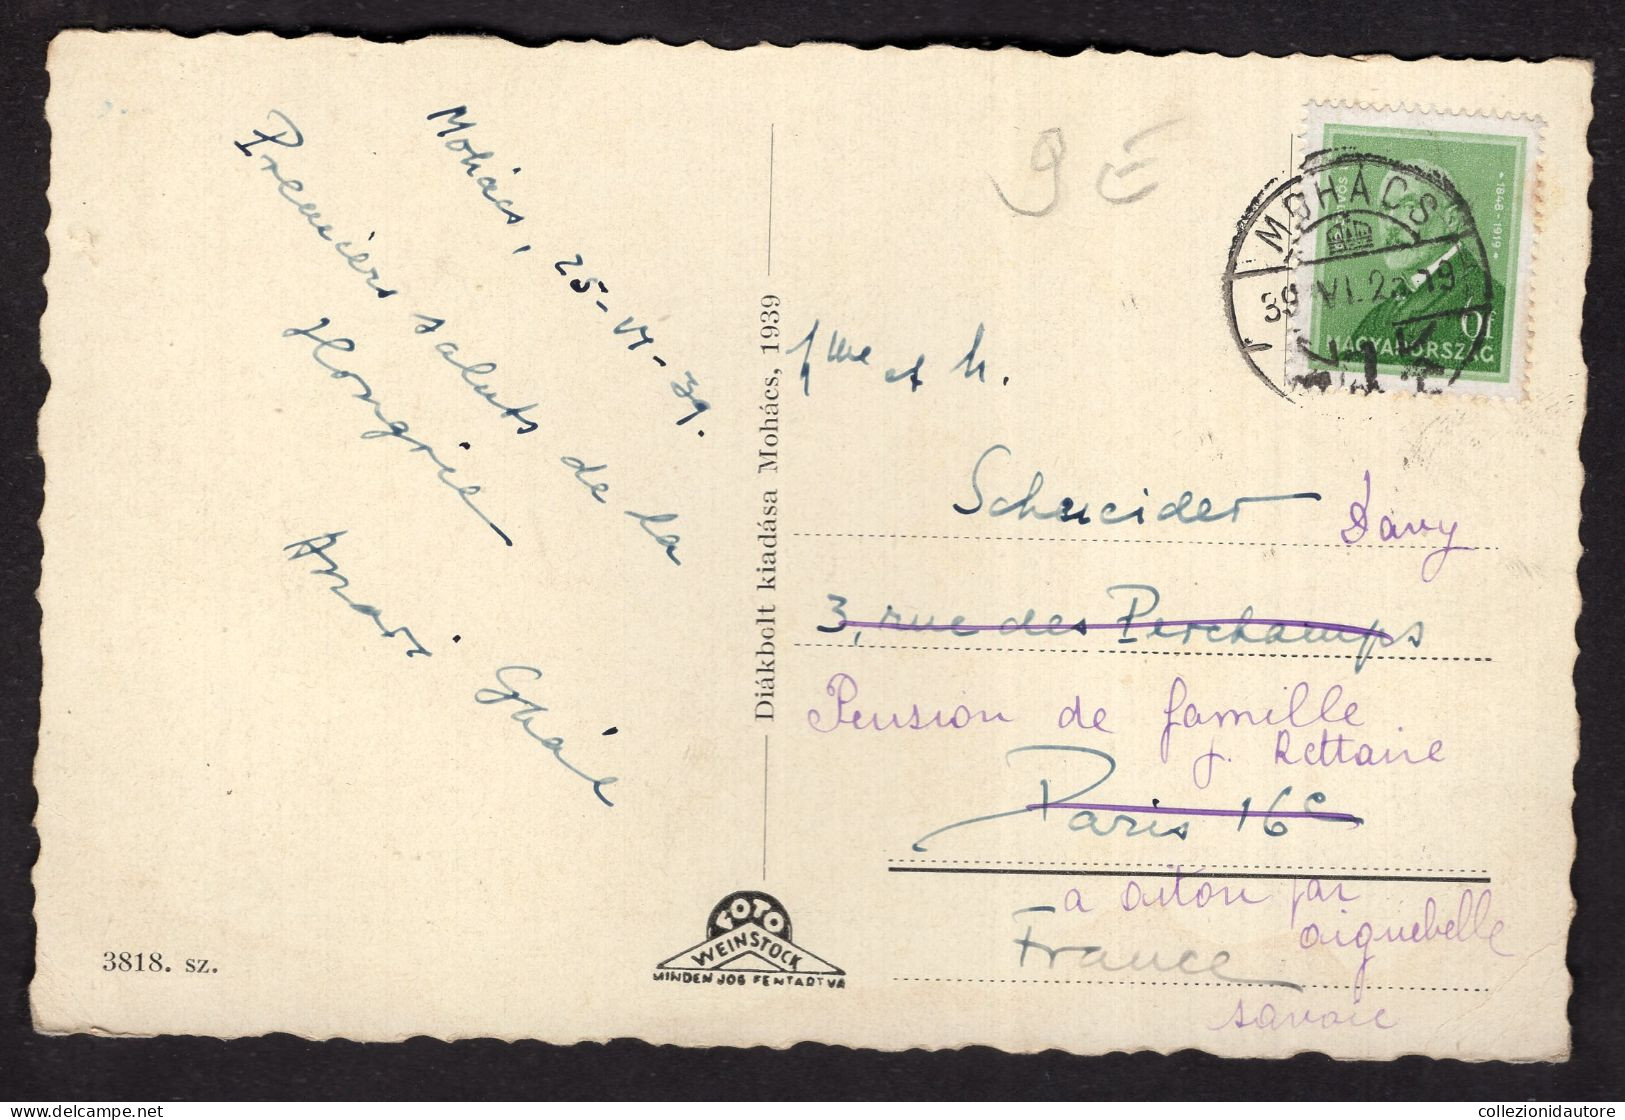 Mohács, 25-VI-39.
Premiers saluts de la
Hongrie
3818. sz.
Diákbolt kiadása Mohács, 1939
FOTO
WEINSTOCK
MINDEN JOG FENTARTVA
9 E
MOHÁCS
39 VI. 25 19
1848-1919
MAGYARORSZÁG
et M.
Schneider Davy
3, rue des Perchamps
Pension de famille
J. Rettaire
Paris 16e
a aiton par
aiguebelle
France
savoie
collezionidautore